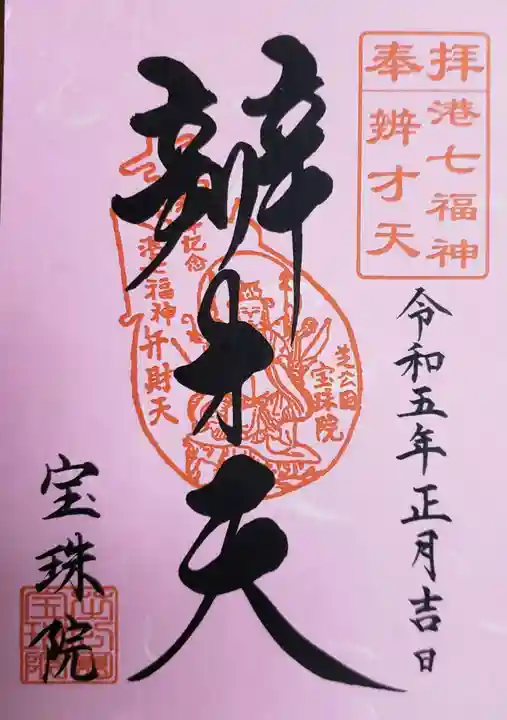 奉拝
港七福神
辨才天
辨才天
令和五年正月吉日
港七福神弁財天
芝公園
宝珠院
宝珠院